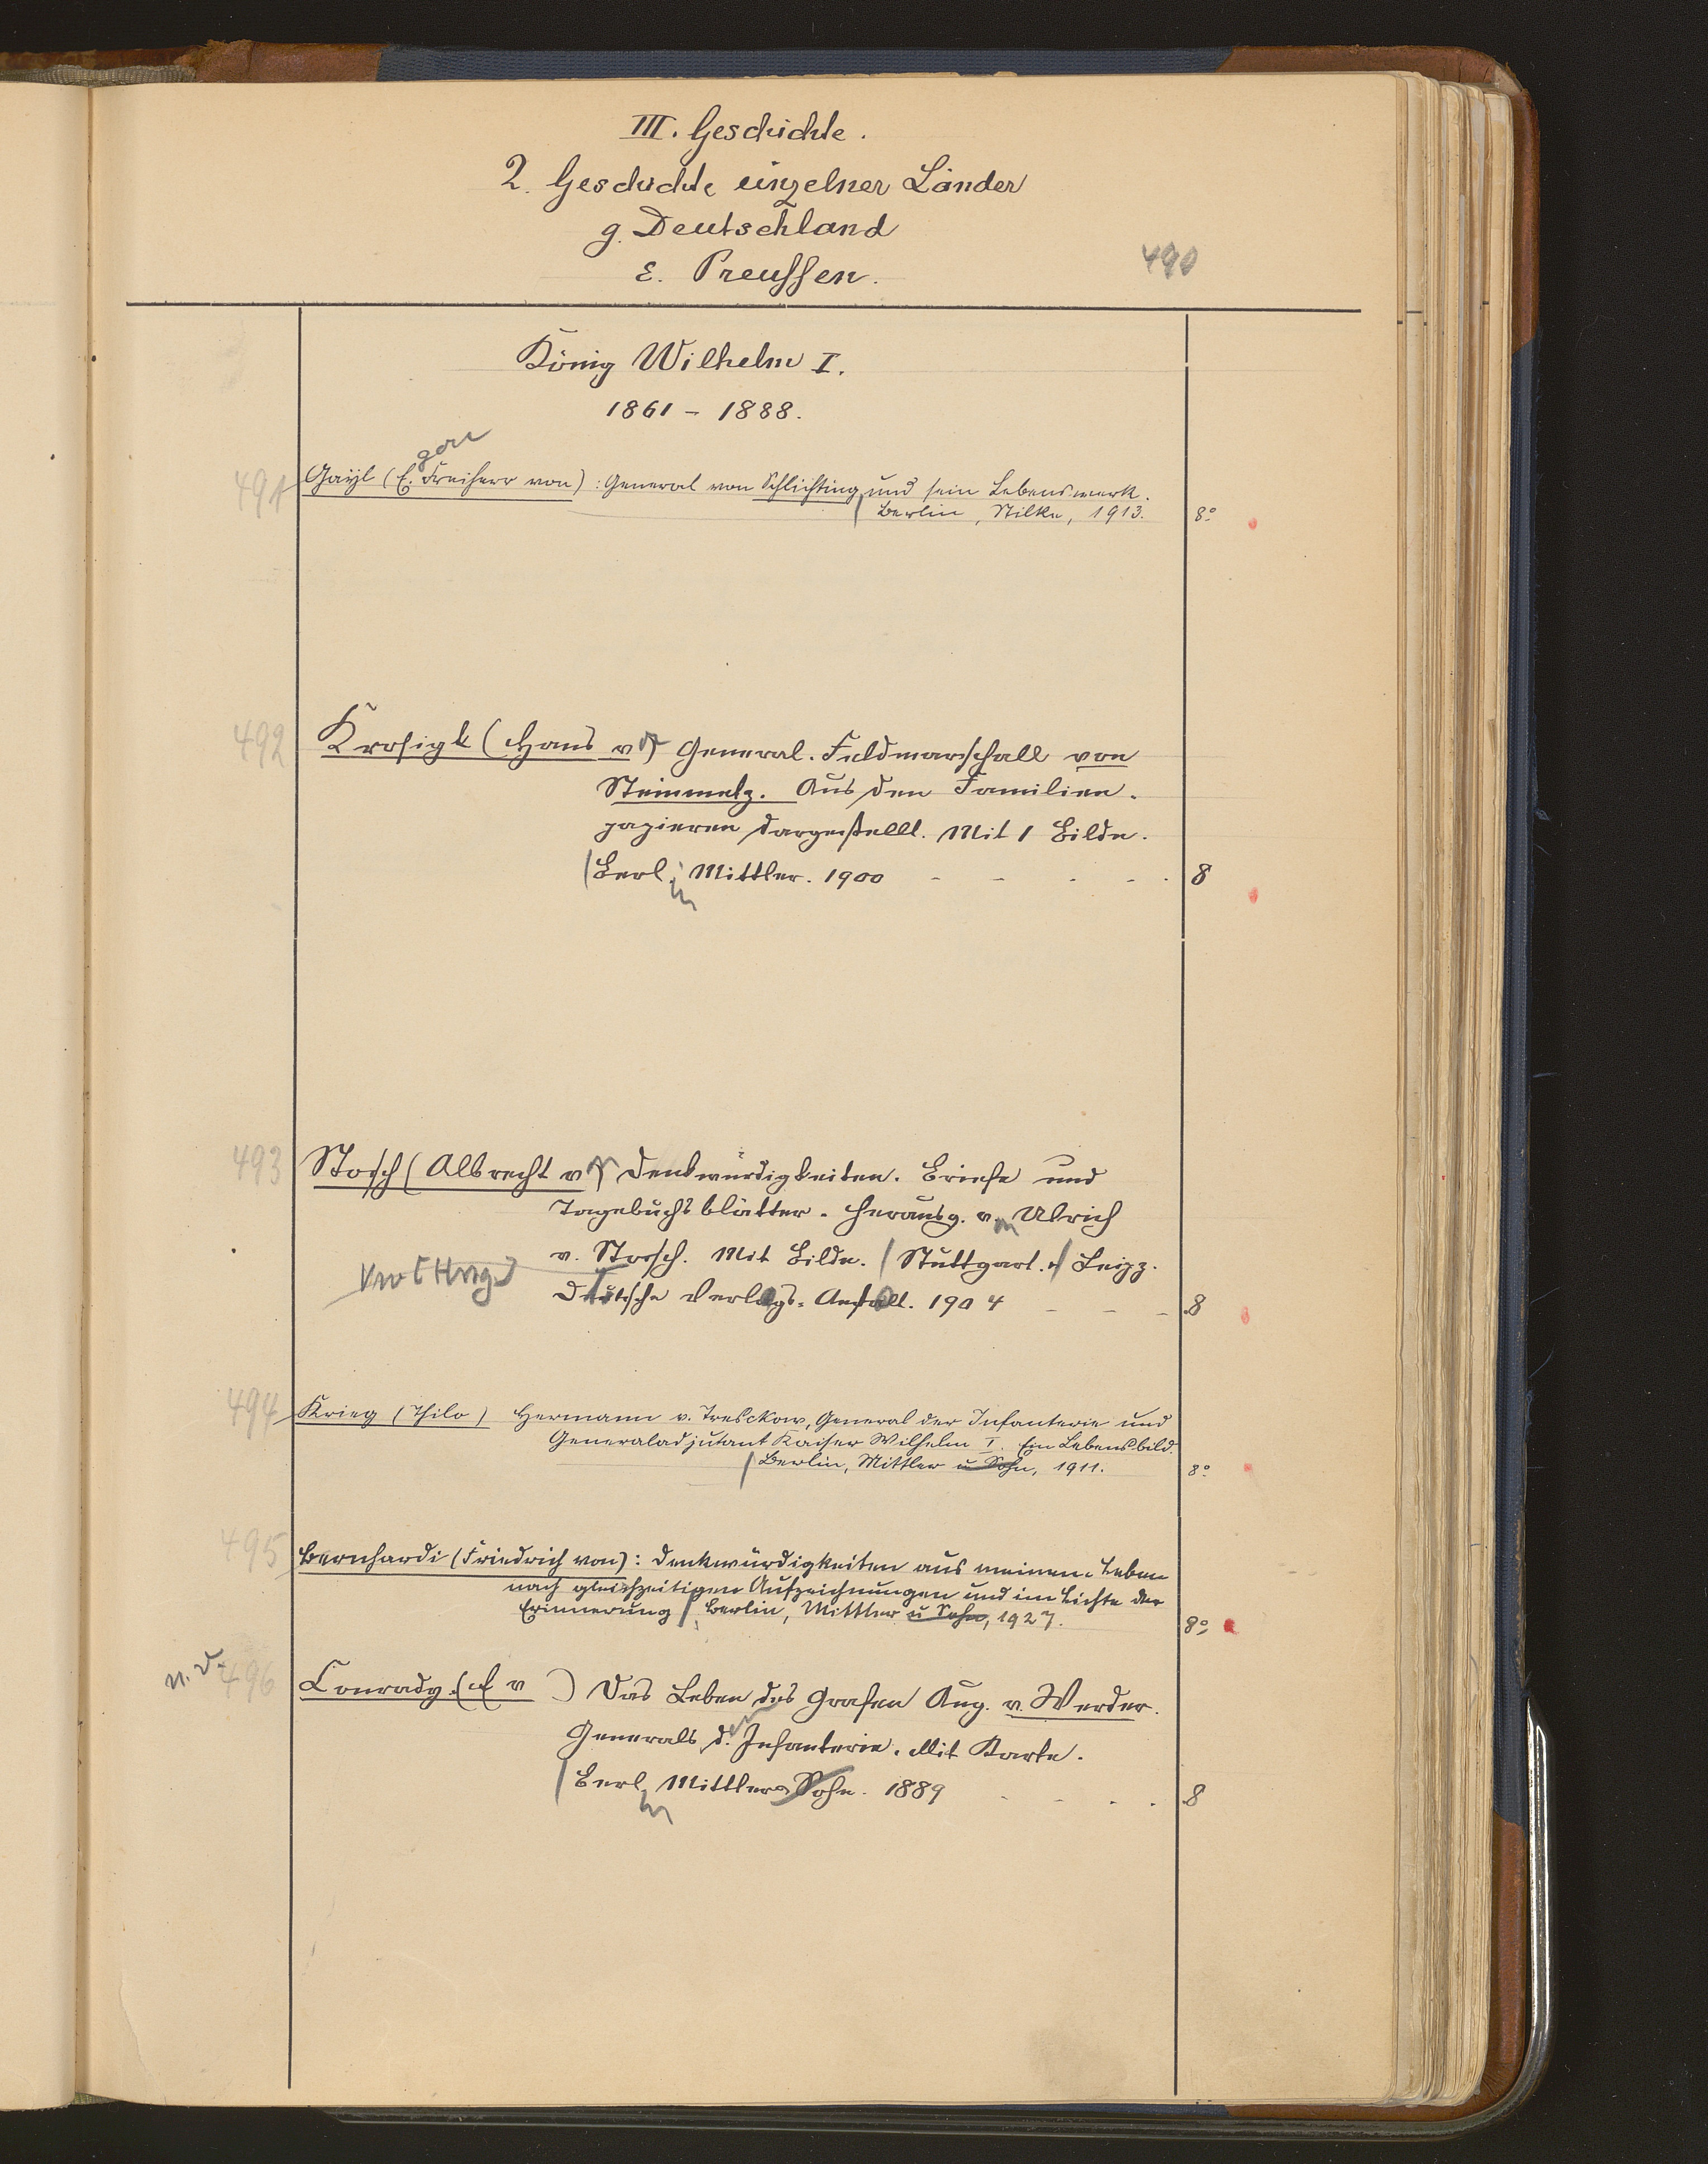 III. Geschichte.
2. Geschichte einzelner Länder
g. Deutschland
ε. Preussen.
490
König Wilhelm I.
1861 – 1888.
gon
491 Gayl (E. Freiherr von): General von Schlichting und sein Lebenswerk.
Berlin, Stilke, 1913. 8°
492 Krosigk (Hans v) General-Feldmarschall von
Steinmetz. Aus den Familien-
papieren dargestellt. Mit 1 Bilde.
Berl. Mittler. 1900 8
493 Stosch (Albrecht v) Denkwürdigkeiten. Briefe und
Tagebuchblätter. Herausg. v. Ulrich
v. Stosch. Mit Bilde. Stuttgart. u Leipz.
Deutsche Verlags-Anstalt. 1904 8
494 Krieg (Thilo) Hermann v. Tresckow, General der Infanterie und
Generaladjutant Kaiser Wilhelm I. Ein Lebensbild.
Berlin, Mittler u Sohn, 1911. 8°
495 Bernhardi (Friedrich von): Denkwürdigkeiten aus meinem Leben
nach gleichzeitigen Aufzeichnungen und im Lichte der
Erinnerung. Berlin, Mittler u Sohn, 1927. 8°
n. v. 496 Conrady (E v ) Das Leben des Grafen Aug. v. Werder.
Generals d. Infanterie. Mit Karte.
Berl. Mittler u Sohn. 1889 8